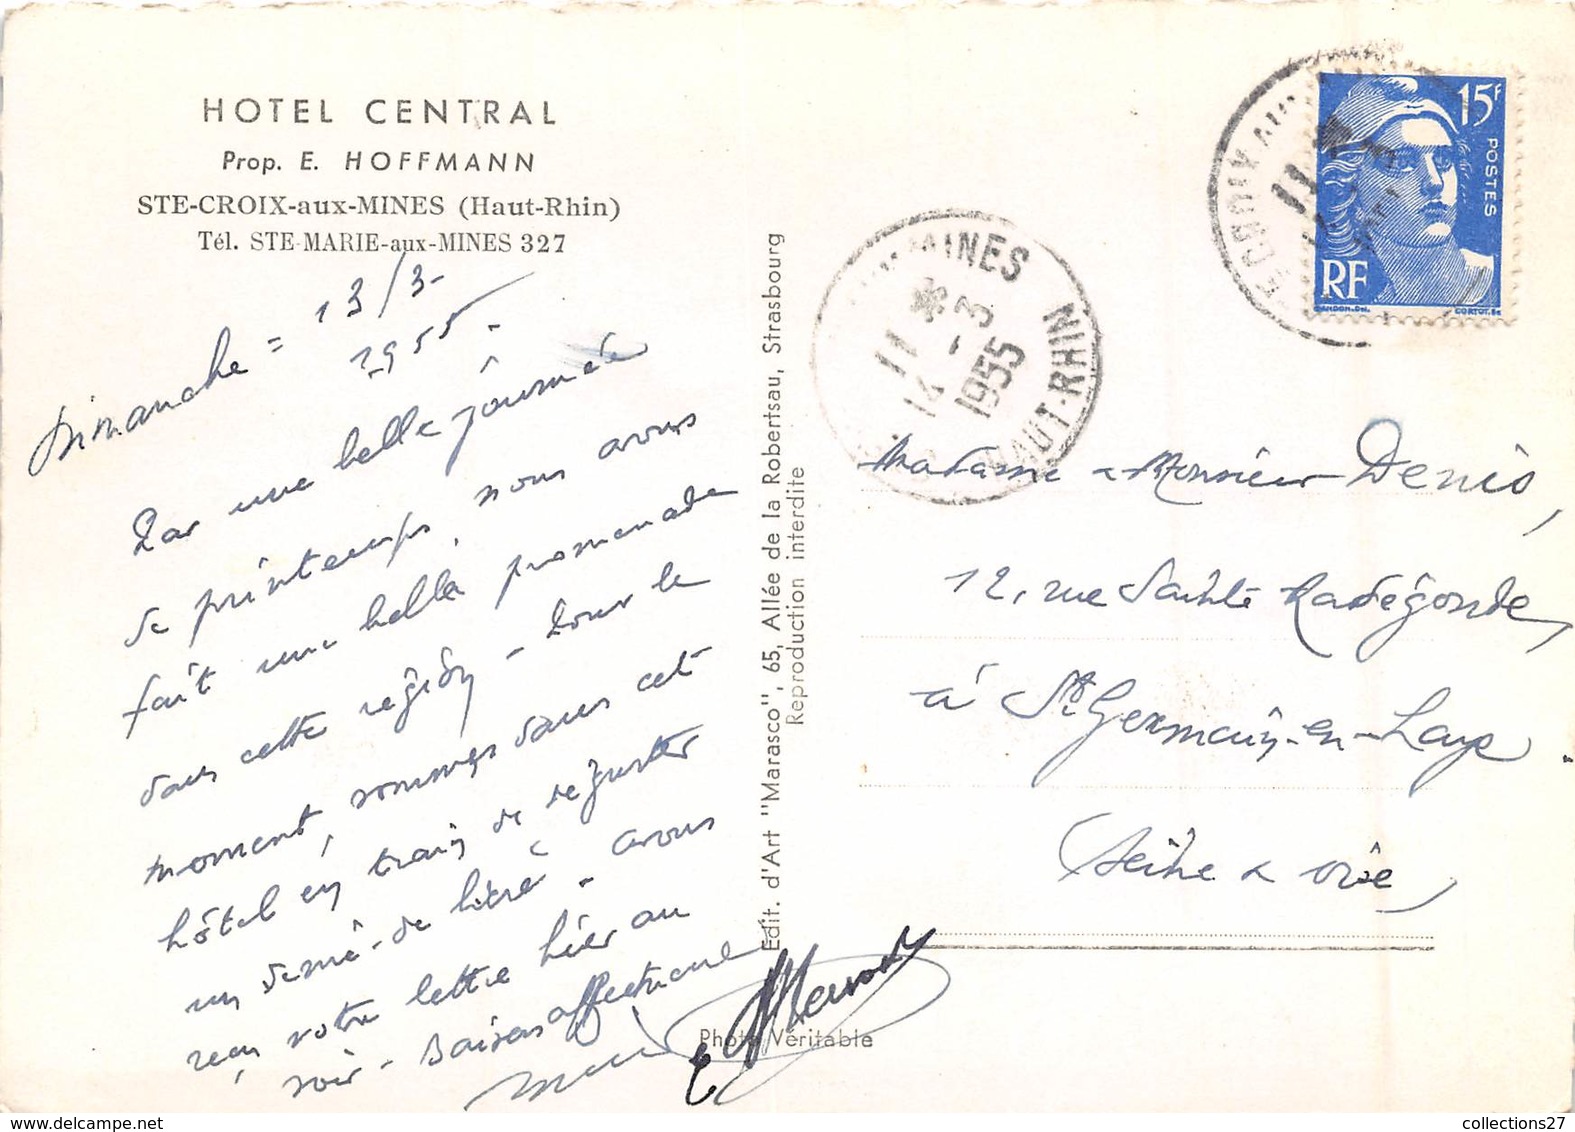 HOTEL CENTRAL
Prop. E. HOFFMANN
STE-CROIX-aux-MINES (Haut-Rhin)
Tél. STE-MARIE-aux-MINES 327
Dimanche = 13/3-
1955.
Par une belle journée
de printemps, nous avons
fait une belle promenade
dans cette région - Pour le
moment, sommes dans cet
hôtel en train de déguster
un demi-de bière - avons
reçu votre lettre hier au
soir - Baisers affectueux
Edit. d'Art "Marasco", 65, Allée de la Robertsau, Strasbourg
Reproduction interdite
Photo Véritable
15F
POSTES
RF
GANDON.Del.
CORTOT.Sc
MINES
HAUT-RHIN
11 *
14 - 3
1955
Madame & Monsieur Denis,
12, rue Sainte Radégonde,
à St Germain-en-Laye.
(Seine & Oise)
collections27